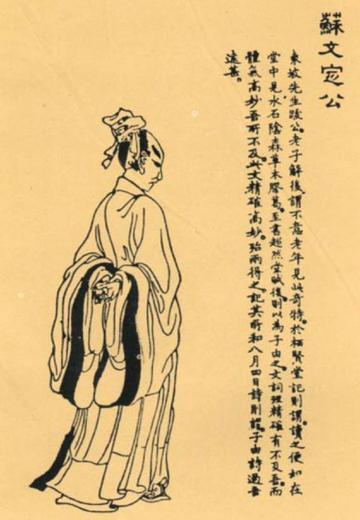 蘇文定公
東坡先生跋公老子解後。謂不意老年見此奇特。於栖賢堂記則謂讀之便如在
堂中見水石陰森草木膠葛。至書超然堂賦後。則以為子由之文詞理精確有不及吾。而
體氣高妙吾所不及。此文精確高妙。殆兩得之。記其所和八月四日詩則謂子由詩過吾
遠甚。